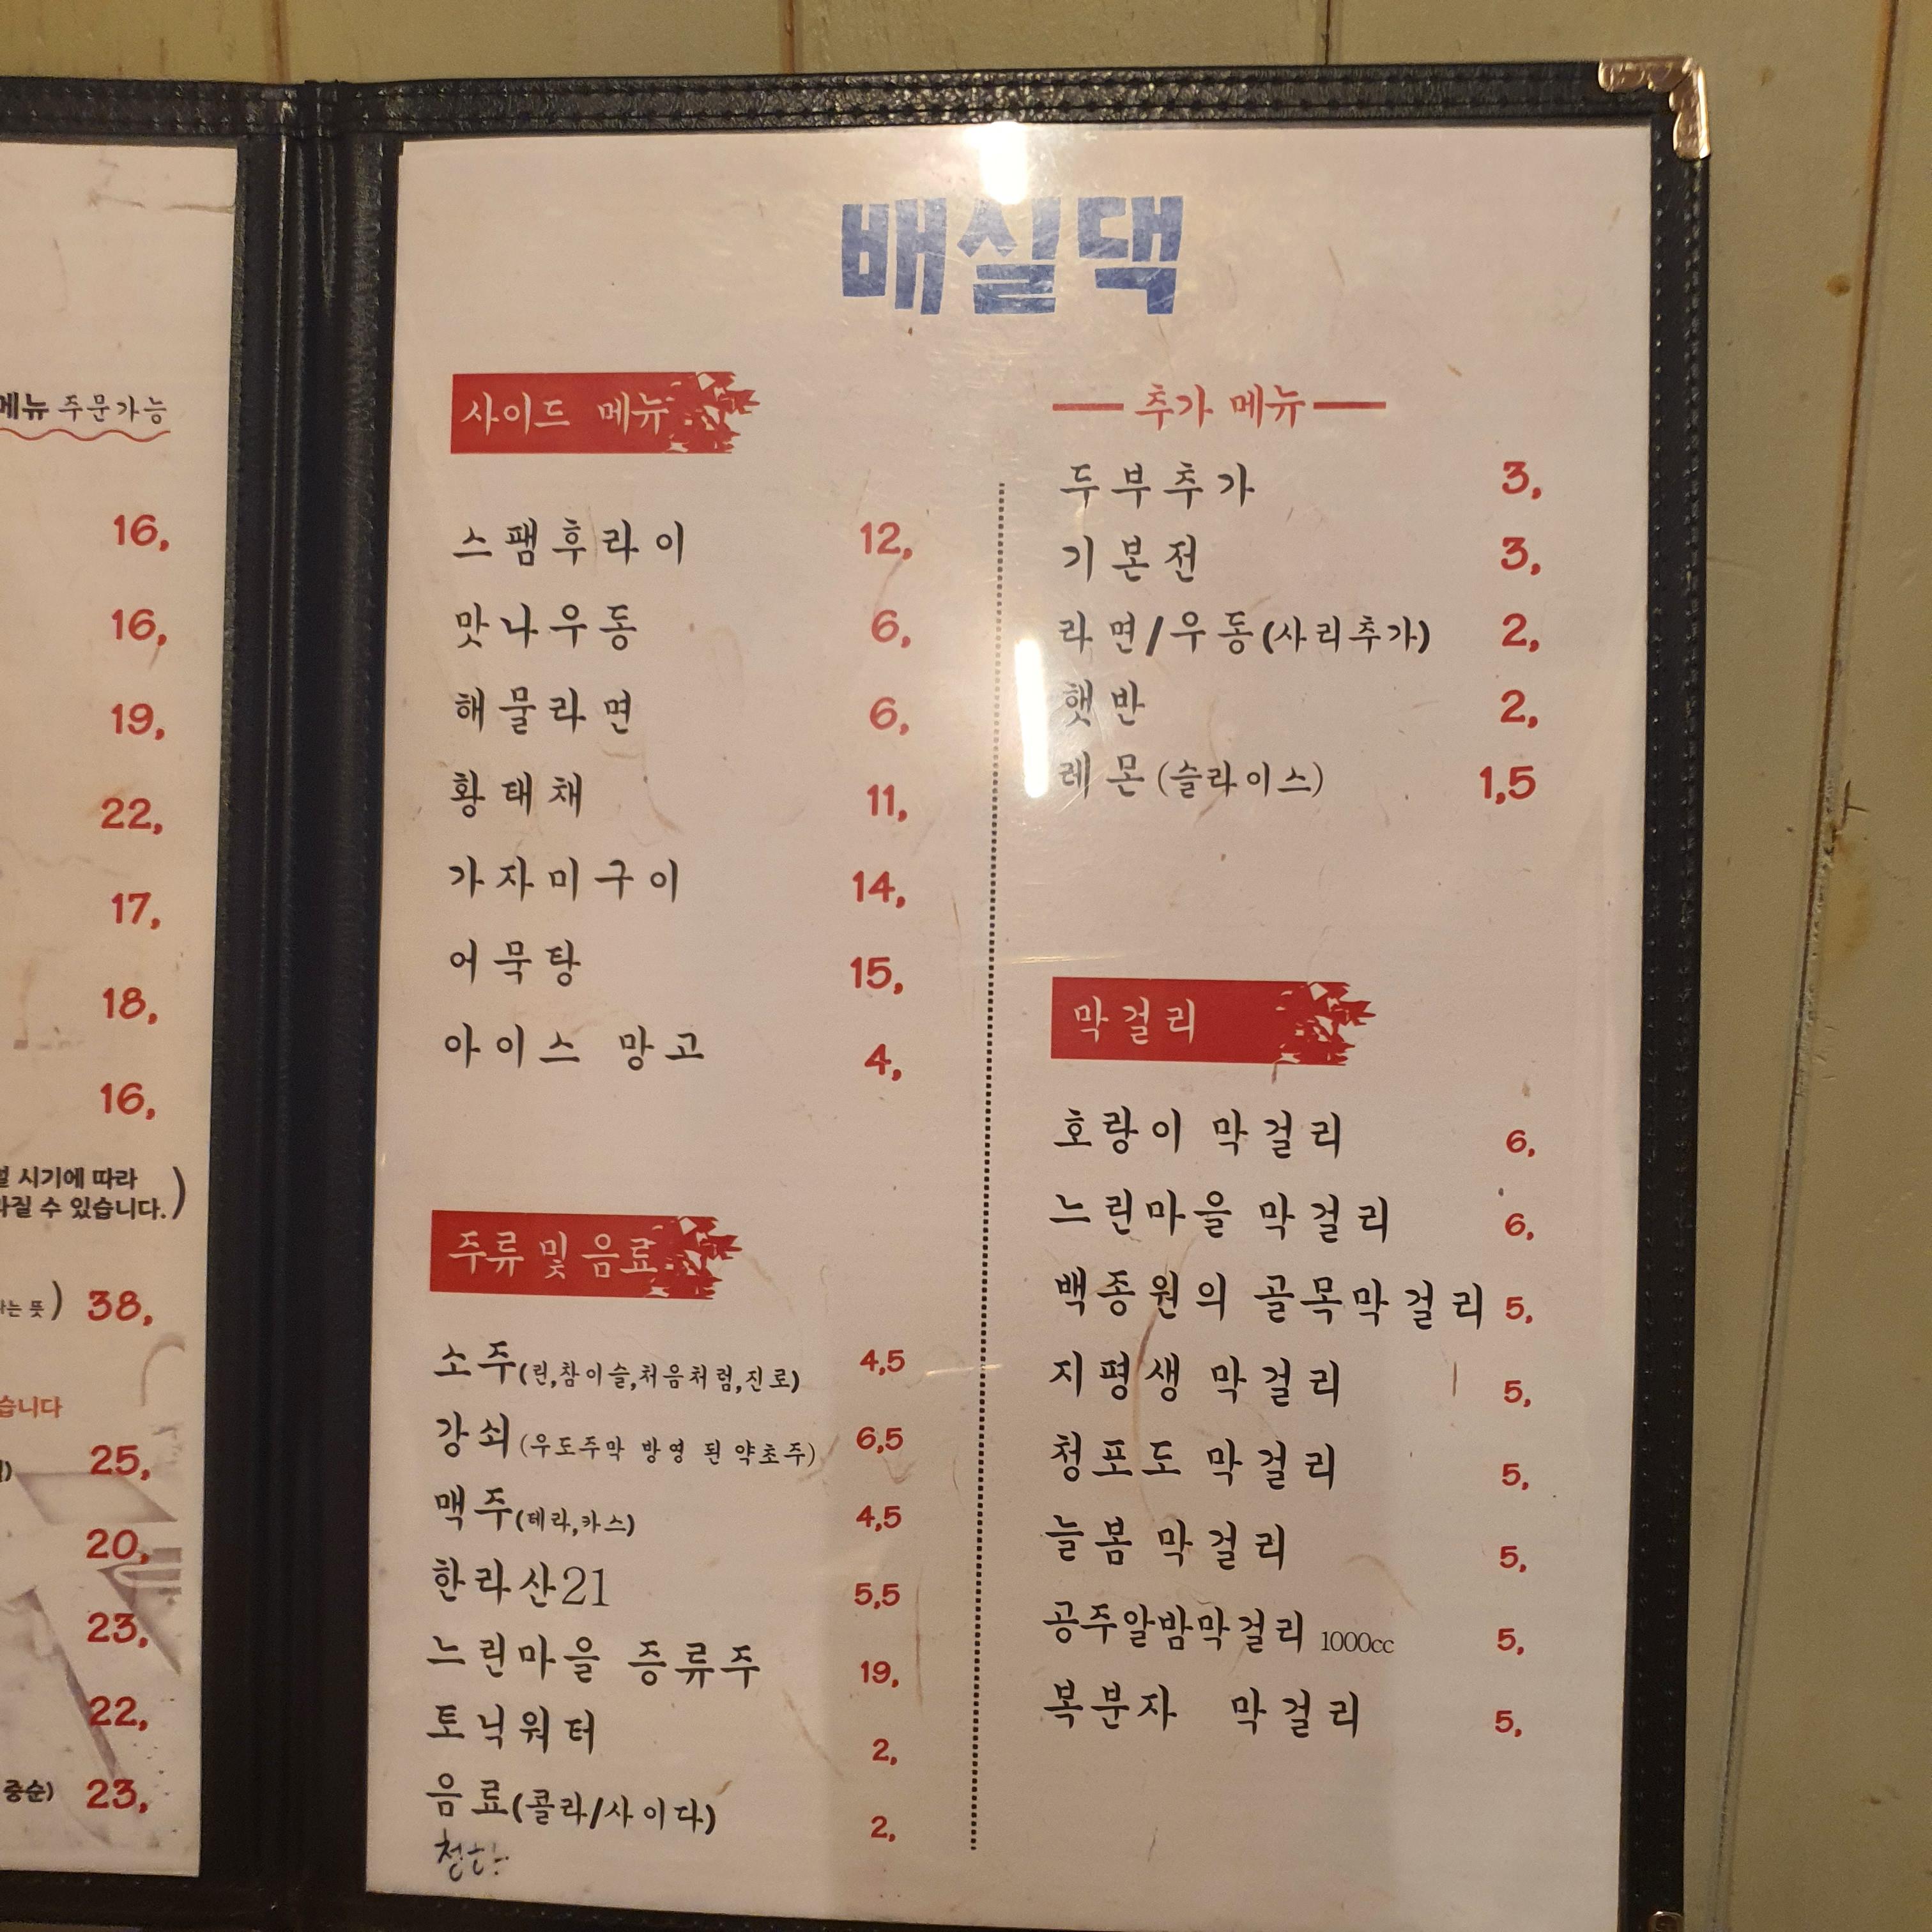 메뉴 주문가능
16,
16,
19,
22,
17,
18,
16,
시기에 따라
질 수 있습니다.)
는 뜻) 38,
습니다
25,
20,
23,
22,
중순) 23,
배실댁
사이드 메뉴
스팸후라이 12,
맛나우동 6,
해물라면 6,
황태채 11,
가자미구이 14,
어묵탕 15,
아이스 망고 4,
주류 및 음료
소주(린,참이슬,처음처럼,진로) 4,5
강쇠(우도주막 방영 된 약초주) 6,5
맥주(테라,카스) 4,5
한라산21 5,5
느린마을 증류주 19,
토닉워터 2,
음료(콜라/사이다) 2,
청하
추가 메뉴
두부추가 3,
기본전 3,
라면/우동(사리추가) 2,
햇반 2,
레몬(슬라이스) 1,5
막걸리
호랑이 막걸리 6,
느린마을 막걸리 6,
백종원의 골목막걸리 5,
지평생 막걸리 5,
청포도 막걸리 5,
늘봄 막걸리 5,
공주알밤막걸리 1000cc 5,
복분자 막걸리 5,